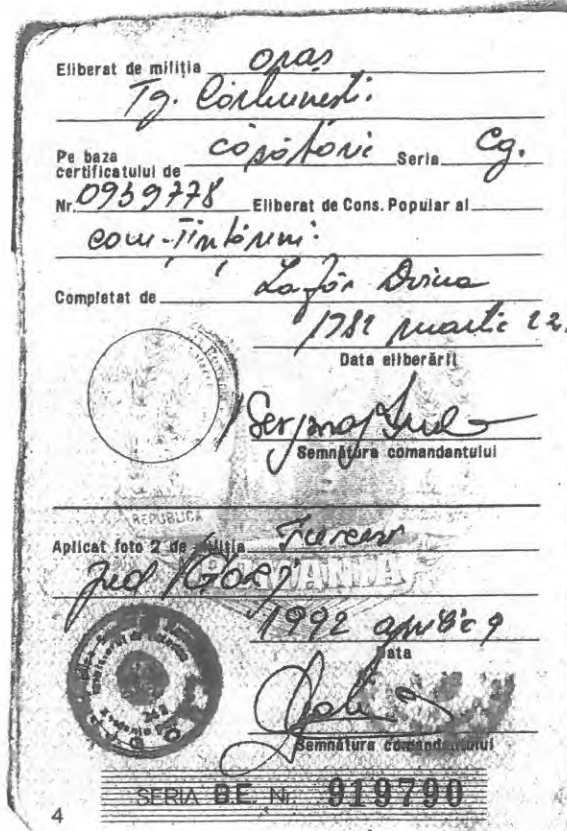 Eliberat de miliția oraș
Tg. Cărbunești
Pe baza
certificatului de căsătorie Seria Cg.
Nr. 0959778 Eliberat de Cons. Popular al
com. Țînțăreni
Completat de
martie 22
Data eliberării
Semnătura comandantului
REPUBLICA
Aplicat foto 2 de miliția Turceni
ROMANIA
Jud Gorj
1992 aprilie 9
Data
Semnătura comandantului
SERIA B.E. Nr. 919790
4